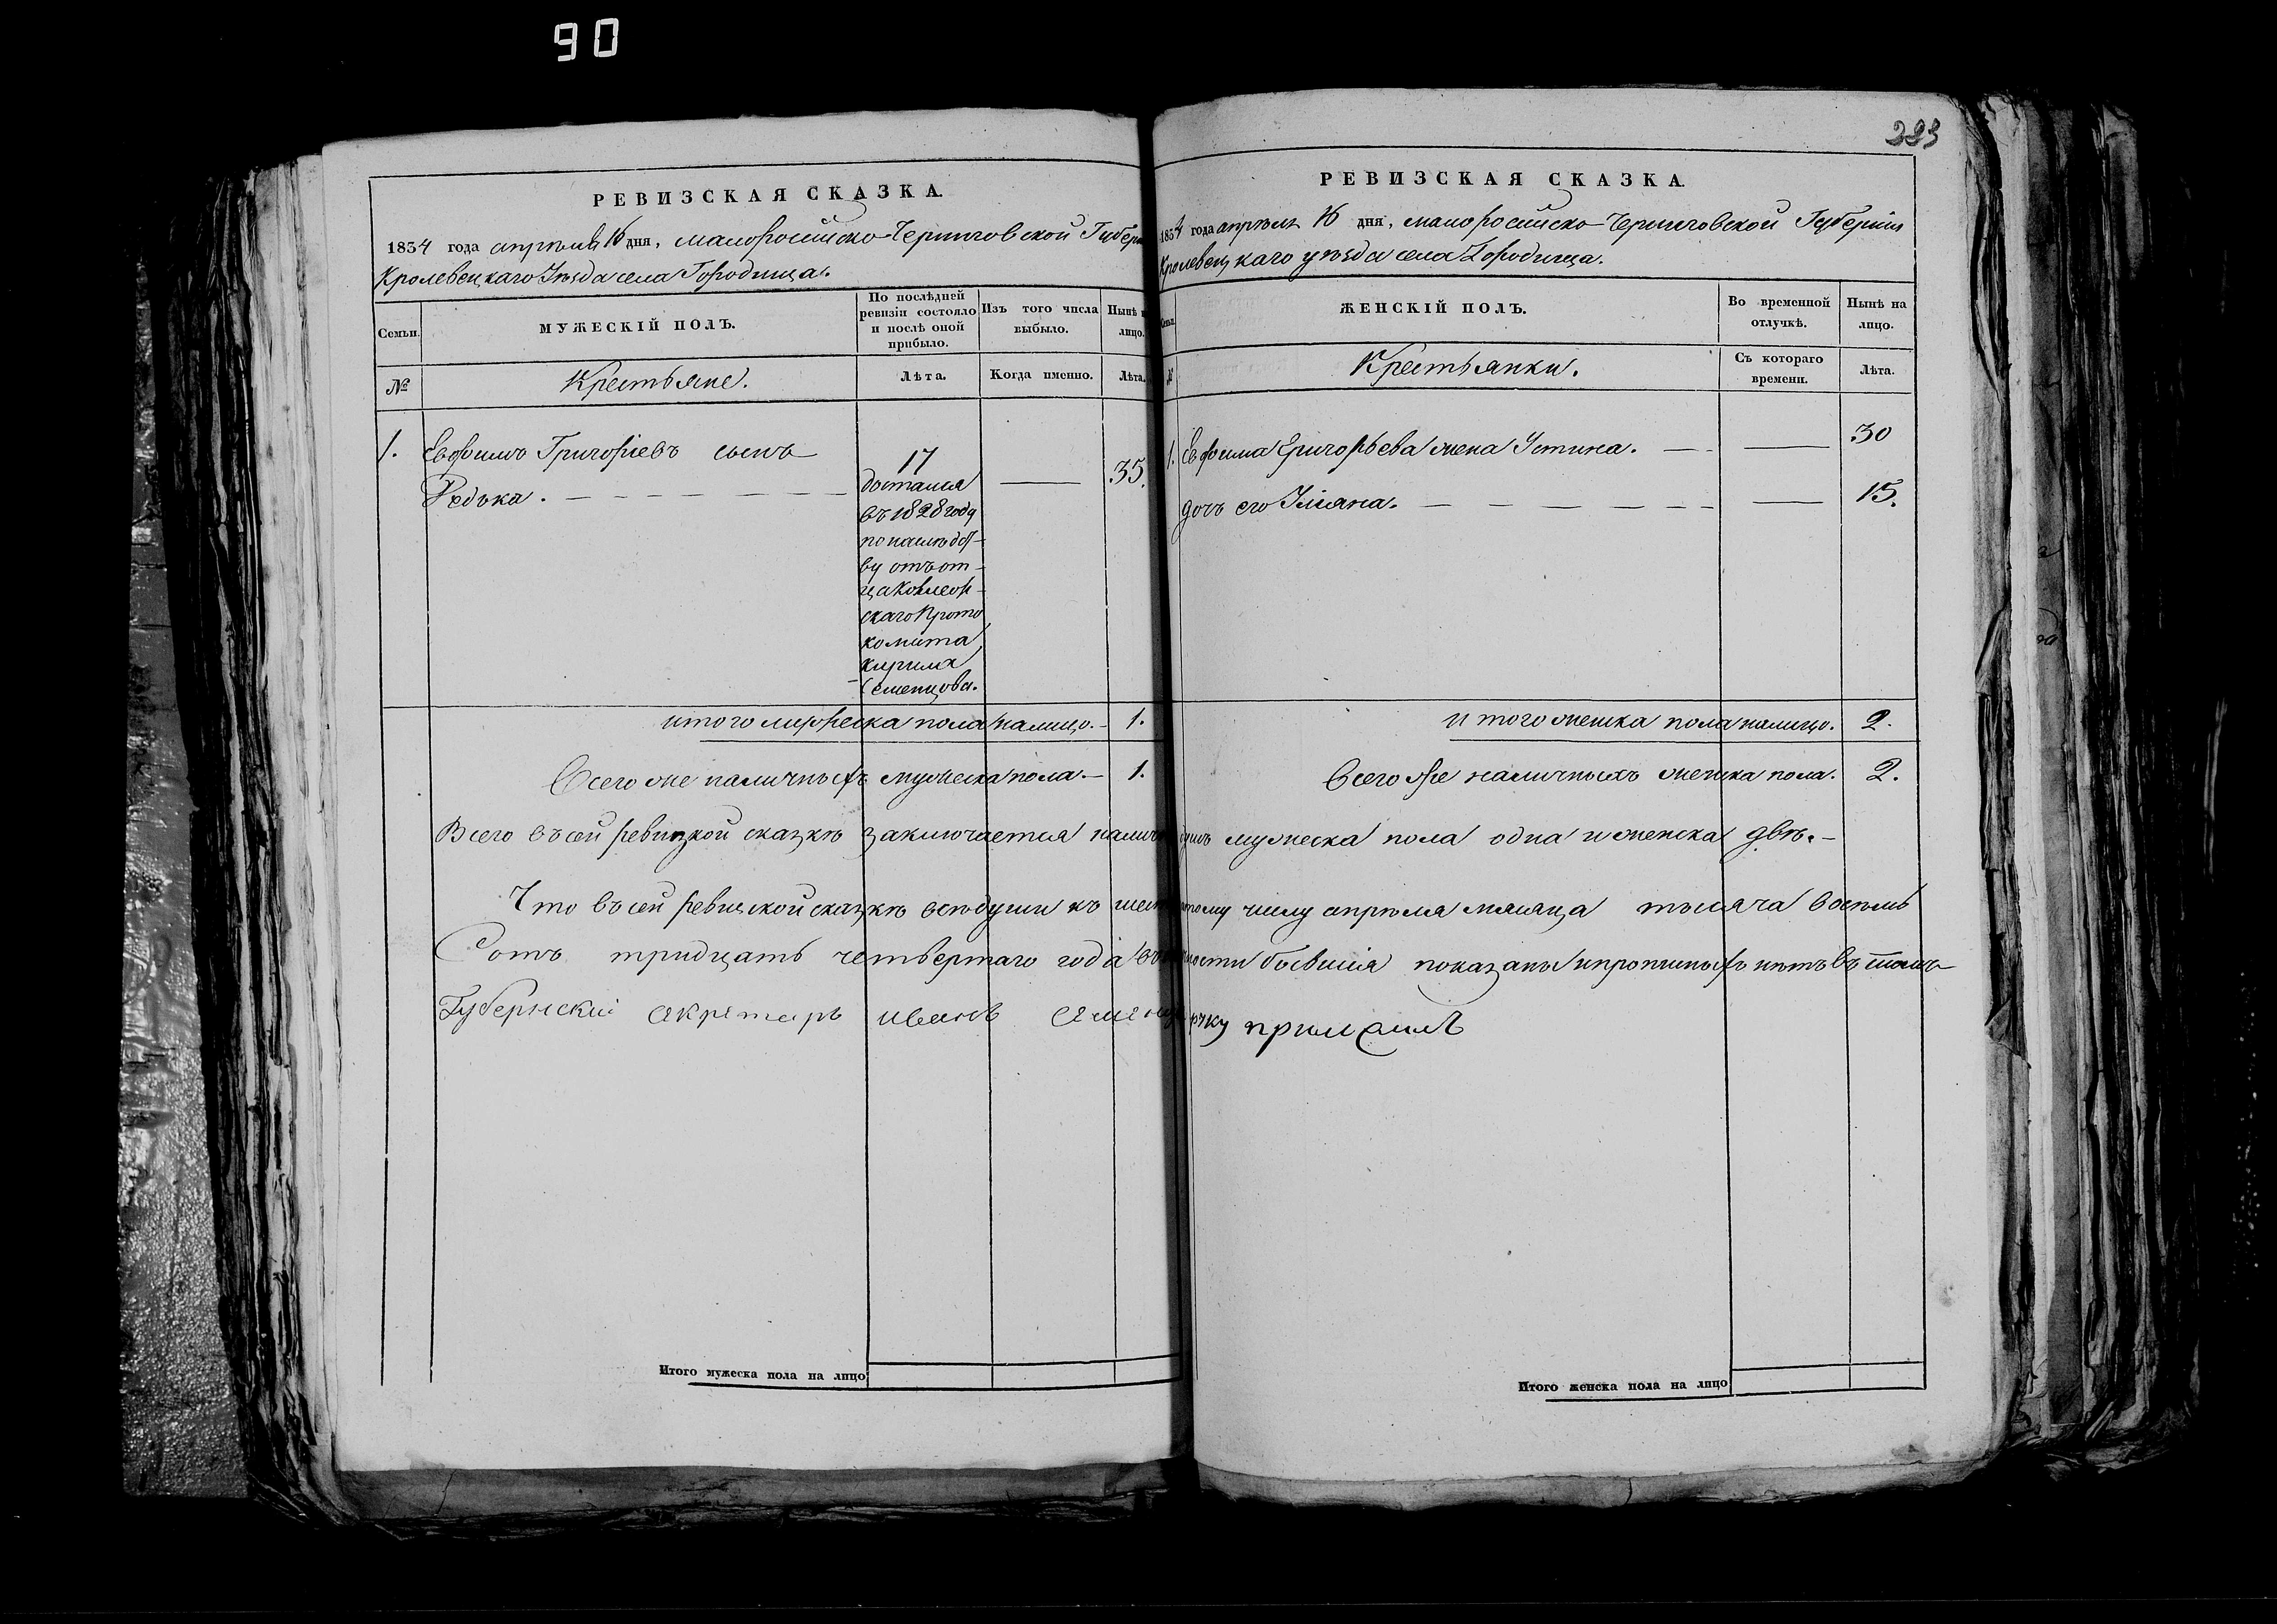 90
РЕВИЗСКАЯ СКАЗКА.
1834 года апреля 16 дня, малоросийско-Черниговской Губерн
Кролевецкаго Уезда села Городища.
Семьи.
МУЖЕСКІЙ ПОЛЪ.
По послѣдней ревизіи состояло и послѣ оной прибыло.
Изъ того числа выбыло.
Нынѣ н лицо.
№
Крестьяне.
Лѣта.
Когда именно.
Лѣта.
1. Евфимъ Григоріевъ сынъ
Редька.
17
досталися
въ 1828 году
по наслѣдст-
ву отъ от-
ца
скаго Прото
комита
Кирила
Семенцова.
35.
итого мужеска пола налицо. 1.
Всего же наличныхъ мужеска пола. 1.
223
РЕВИЗСКАЯ СКАЗКА.
1834 года апрѣля 16 дня, малоросийско Черниговской Губерніи
Кролевецкаго уѣзда села Городища.
ЖЕНСКІЙ ПОЛЪ.
Во временной отлучкѣ.
Нынѣ на лицо.
№
Крестьянки.
Съ котораго времени.
Лѣта.
1. Евфима Григорьева жена Устина. 30
дочь его Уліяна. 15.
итого женска пола налицо. 2.
Всего же наличныхъ женска пола. 2.
Всего въ сей ревизкой сказкѣ заключается налич душъ мужеска пола одна и женска двѣ.
Что въ сей ревиской сказкѣ всѣ души къ шест атому числу апрѣля мѣсяца тысяча восѣмь
Сотъ тридцать четвертаго года въ ности бывшія показаны и прописныхъ нѣтъ въ томъ
Губернский секретарь иванъ Семенцовъ руку приложилъ
Итого мужеска пола на лицо
Итого женска пола на лицо